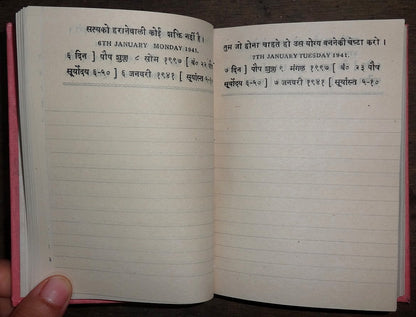 सत्यको हरानेवाली कोई शक्ति नहीं है ।
6TH JANUARY MONDAY 1941.
६ दिन ] पौष शुक्ल ८ सोम १९९७ [ बं० २२ पौष
सूर्योदय ६-५० ] ६ जनवरी १९४१ [ सूर्यास्त ५-१०
तुम जो होना चाहते हो उस योग्य बननेकी चेष्टा करो ।
7TH JANUARY TUESDAY 1941.
७ दिन ] पौष शुक्ल ९ मंगल १९९७ [ बं० २३ पौष
सूर्योदय ६-५० ] ७ जनवरी १९४१ [ सूर्यास्त ५-१०